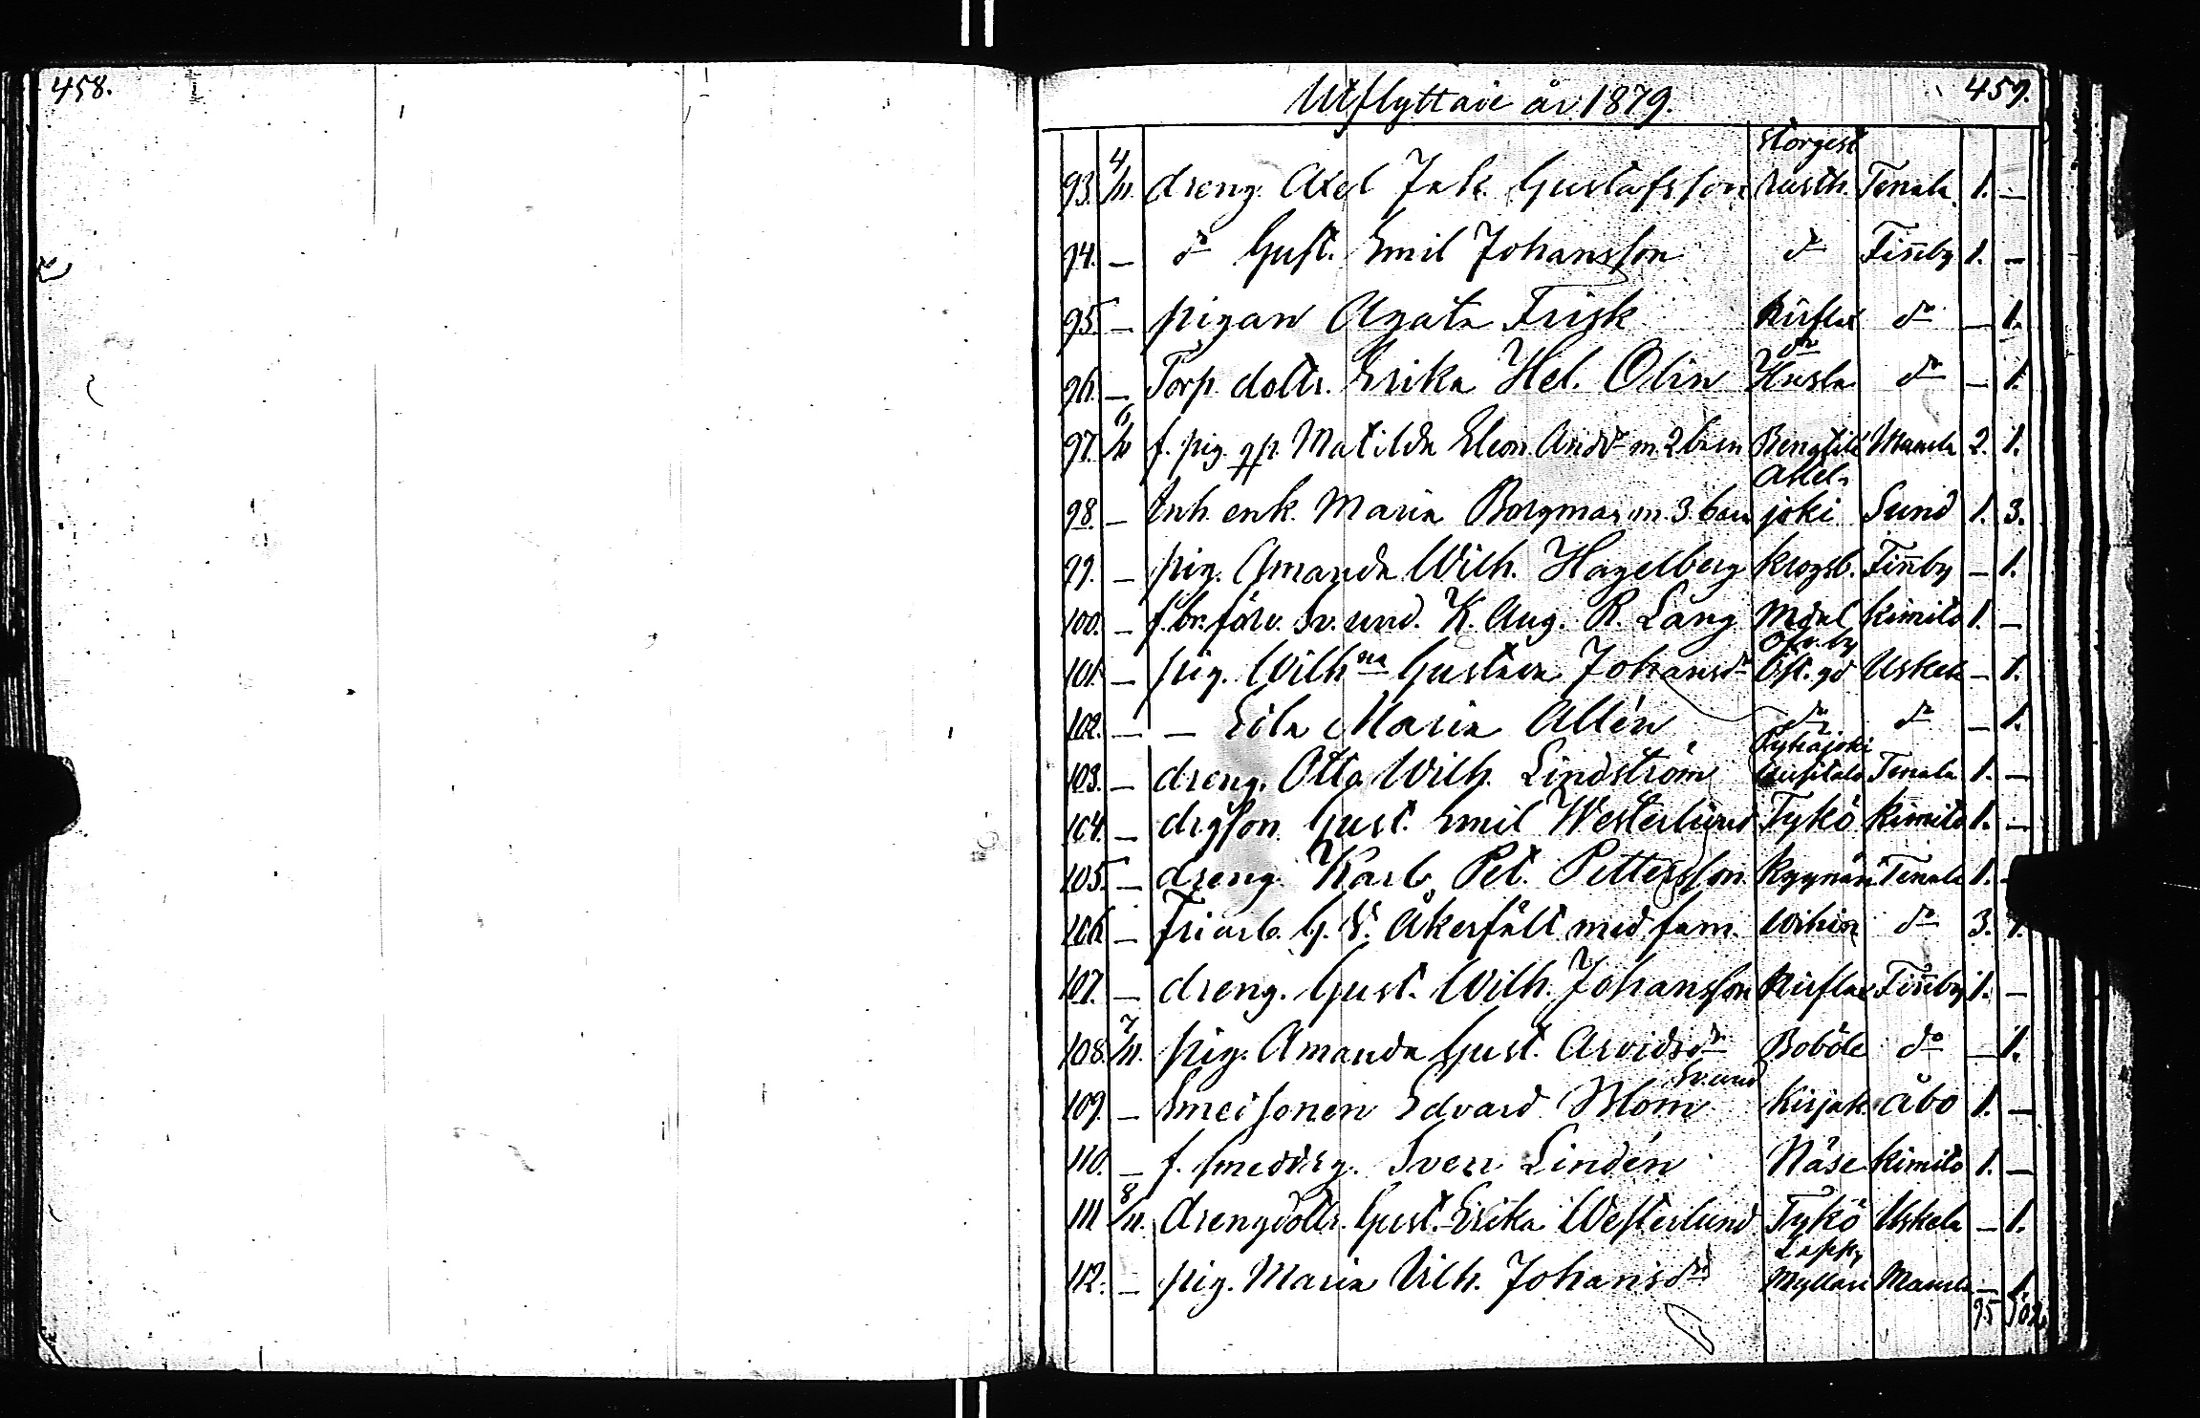 458.
Utflyttade år 1879.
459.
93. 4/11. dreng. Axel Jak. Gustafsson Storgest rusth. Tenala 1. —
94. — do Gust. Emil Johansson do Finby 1. —
95. — pigan Agata Frisk Kirflax do — 1.
96. — Torp. dottr. Erika Hel. Olin do Husla do — 1.
97. 6/11 f. pig. qp. Matilda Eleon. Andsdr m. 2 barn Bengtilä Uskela 2. 1.
98. — Inh. enk. Maria Borgman m. 3 barn joki Sund 1. 3.
99. — pig. Amanda Wilh. Hagelberg Krogsb. Finby — 1.
100. — f. br. förv. Sv. und. K. Aug. R. Lång Kimito 1. —
101. — pig. Wilhna Gustava Johansdr Öfv.by Öst.gd Uskela — 1.
102. — — Eila Maria Allén do do — 1.
103. — dreng. Otto Wilh. Lindström Pyhäjoki Uusitalo Tenala 1. —
104. — drgson Gust. Emil Westerlund Tykö Kimito 1. —
105. — dreng. Karl Pet. Pettersson Kyynärä Tenala 1.
106. — Friarb. G. V. Åkerfält med fam. do 3. 1.
107. — dreng. Gust. Wilh. Johansson Kirflax Finby 1. —
108. 7/11. pig. Amanda Gust. Arvidsdr Boböle do — 1.
109. — Smeisonen Edvard Blom Sv. und Kirjak. Åbo 1. —
110. — f. smeddrg. Sven Lindén Näse Kimito 1. —
111 8/11. drengdottr. Gust. Erika Westerlund Tykö Uskela — 1.
112. — pig. Maria Vilh. Johansdr Lapp. Myllari — 1.
95